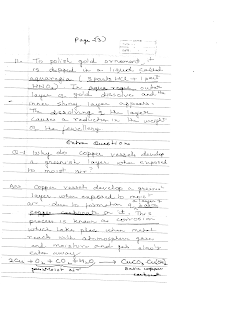 Page (3)
A:- To polish gold ornament, it
is dipped in a liquid called
aquaregia (3 parts HCl + 1 part
HNO3). In aqua regia outer
layer of gold dissolve and the
inner shiny layer appears.
The dissolving of the layer
cause a reduction in the weight
of the jewellery.
Extra Questions
Q-1 Why do copper vessels develop
a greenish layer when exposed
to moist air?
Ans Copper vessels develop a green
layer when exposed to moist
air due to formation of basic
copper carbonate on it. This
process is known as corrosion
which take place when metal
reacts with atmosphere gases
and moisture and get slowly
eaten away.
2Cu + O2 + CO2 + H2O → CuCO3 Cu(OH)2
moist air Basic copper
carbonate